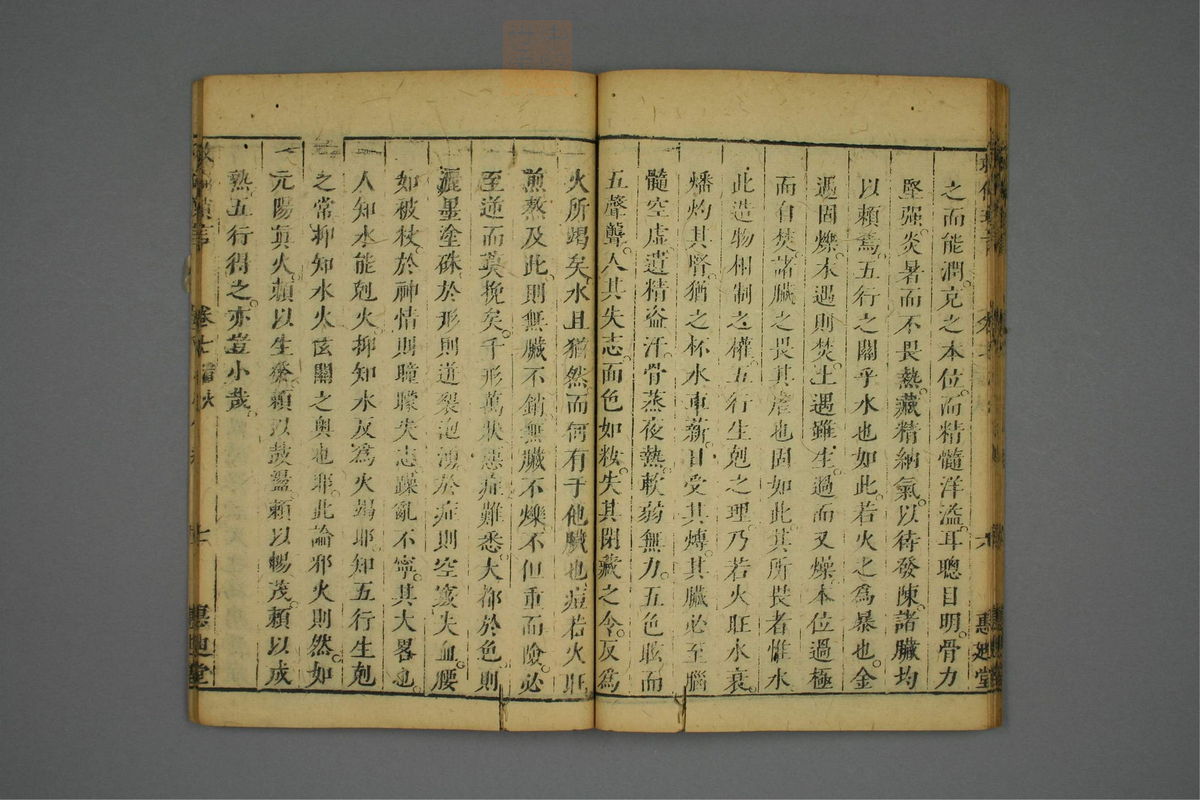 之而能潤克之本位。而精髓洋溢。耳聰目明。骨力
堅强。炎暑而不畏熱。藏精納氣。以待發陳。諸臟均
以賴焉。五行之關乎水也如此。若火之爲暴也。金
遇固爍。木遇則焚。土遇雖生。過而又燥。本位過極
而自焚。諸臟之畏其虐也固如此。其所畏者惟水。
此造物相制之權。五行生剋之理。乃若火旺水衰。
燔灼其腎。猶之杯水車薪。日受其煿。其臟必至腦
髓空虛。遺精盗汗。骨蒸夜熱。軟弱無力。五色眩而
五聲聾。人其失志。面色如妝。失其閉藏之令。反爲
火所竭矣。水且猶然。而何有于他臟也。痘若火旺。
煎熬及此。則無臟不銷。無臟不爍。不但重而險。必
至逆而莫挽矣。千形萬狀。惡症難悉。大都於色。則
灑墨塗硃。於形則迸裂泡湧。於症則空竅失血。腰
如被杖。於神情則瞳矇失志。躁亂不寧。其大畧也。
人知水能剋火。抑知水反爲火竭耶。知五行生剋
之常。抑知水火玄關之奥也耶。此論邪火則然。如
元陽眞火。賴以生發。賴以鼓盪。賴以暢茂。賴以成
熟。五行得之。亦豈小哉。
卷七
七
惠迪堂
六
惠迪堂